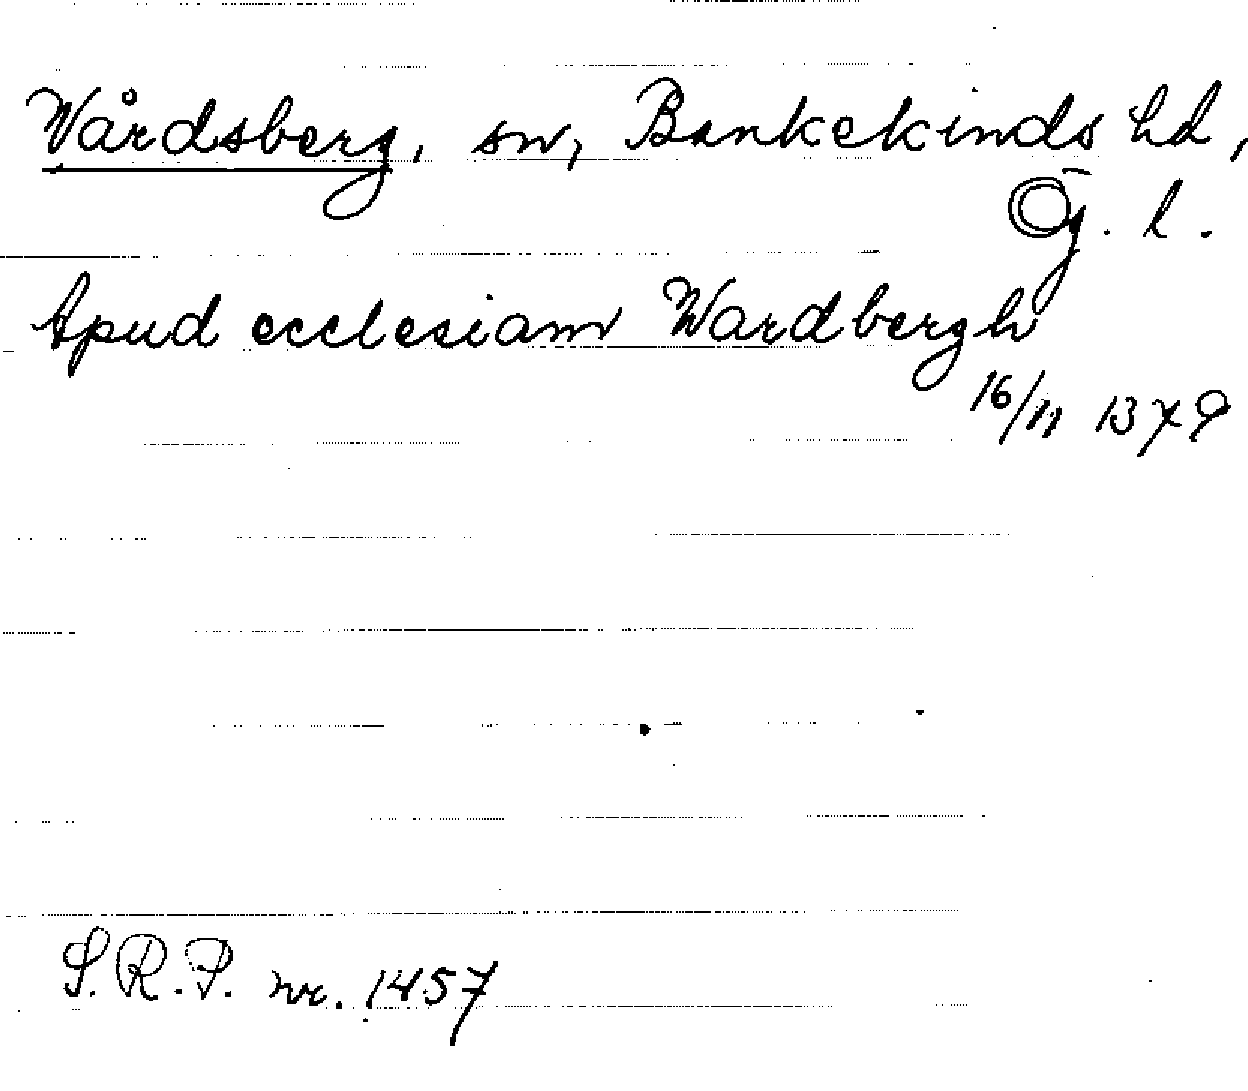 Wårdsberg, sn, Bankekinds hd,
Ög. l.
Apud ecclesiam Wardbergh
16/11 1379
S.R.P. nr. 1457